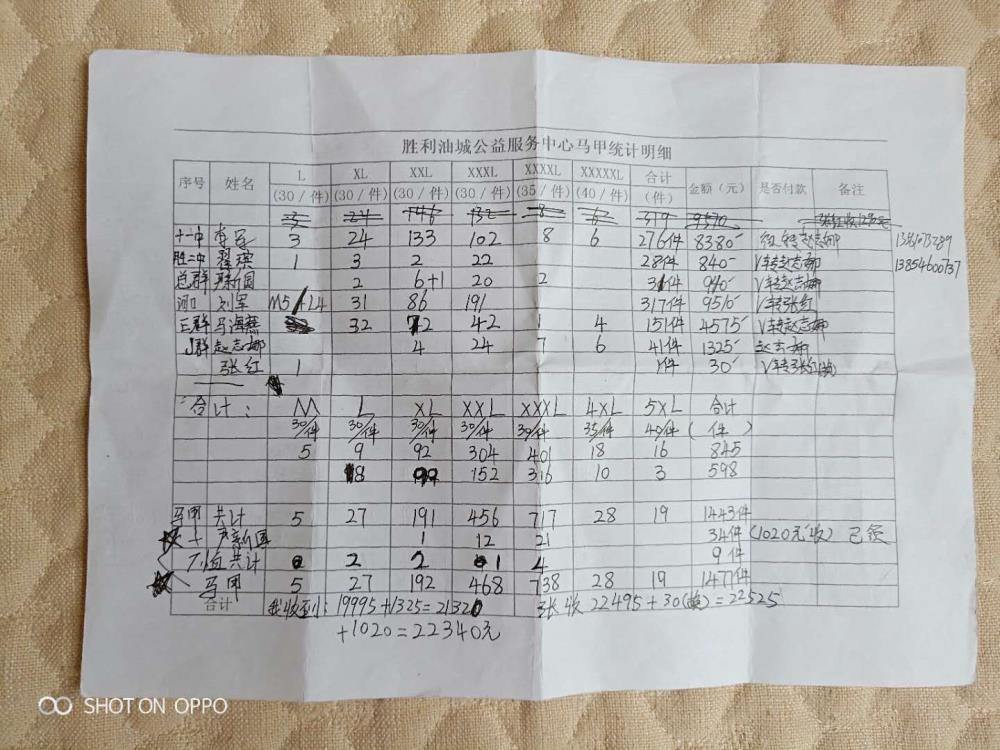 胜利油城公益服务中心马甲统计明细
序号 姓名 L XL XXL XXXL XXXXL XXXXXL 合计 金额（元） 是否付款 备注
(30/件) (30/件) (30/件) (30/件) (35/件) (40/件) (件)
3 24 146 132 8 6 319 9570
十一中 3 24 133 102 8 6 276件 8380- 赵志娜
胜二中 翟瑛 1 3 2 22 28件 840- V转赵志娜 13854600737
总群 2 6+1 20 2 31件 940- V转赵志娜
河口 刘军 M5 L4 31 86 191 317件 9510- V转张红
E群 马海燕 32 72 42 1 4 151件 4575- V转赵志娜
J群 赵志娜 4 24 7 6 41件 1325- 赵志娜
张红 1 1件 30- V转张红
合计: M L XL XXL XXXL 4XL 5XL 合计
30/件 30/件 30/件 30/件 30/件 35/件 40/件 (件)
5 9 92 304 401 18 16 845
18 99 152 316 10 3 598
马甲 共计 5 27 191 456 717 28 19 1443件
+ 1 12 21 34件 (1020元 收)
共计 2 2 1 4 9件
马甲 5 27 192 468 738 28 19 1477件
合计 我收到: 19995+1325=21320 张收 22495+30=22525
+1020=22340元
SHOT ON OPPO